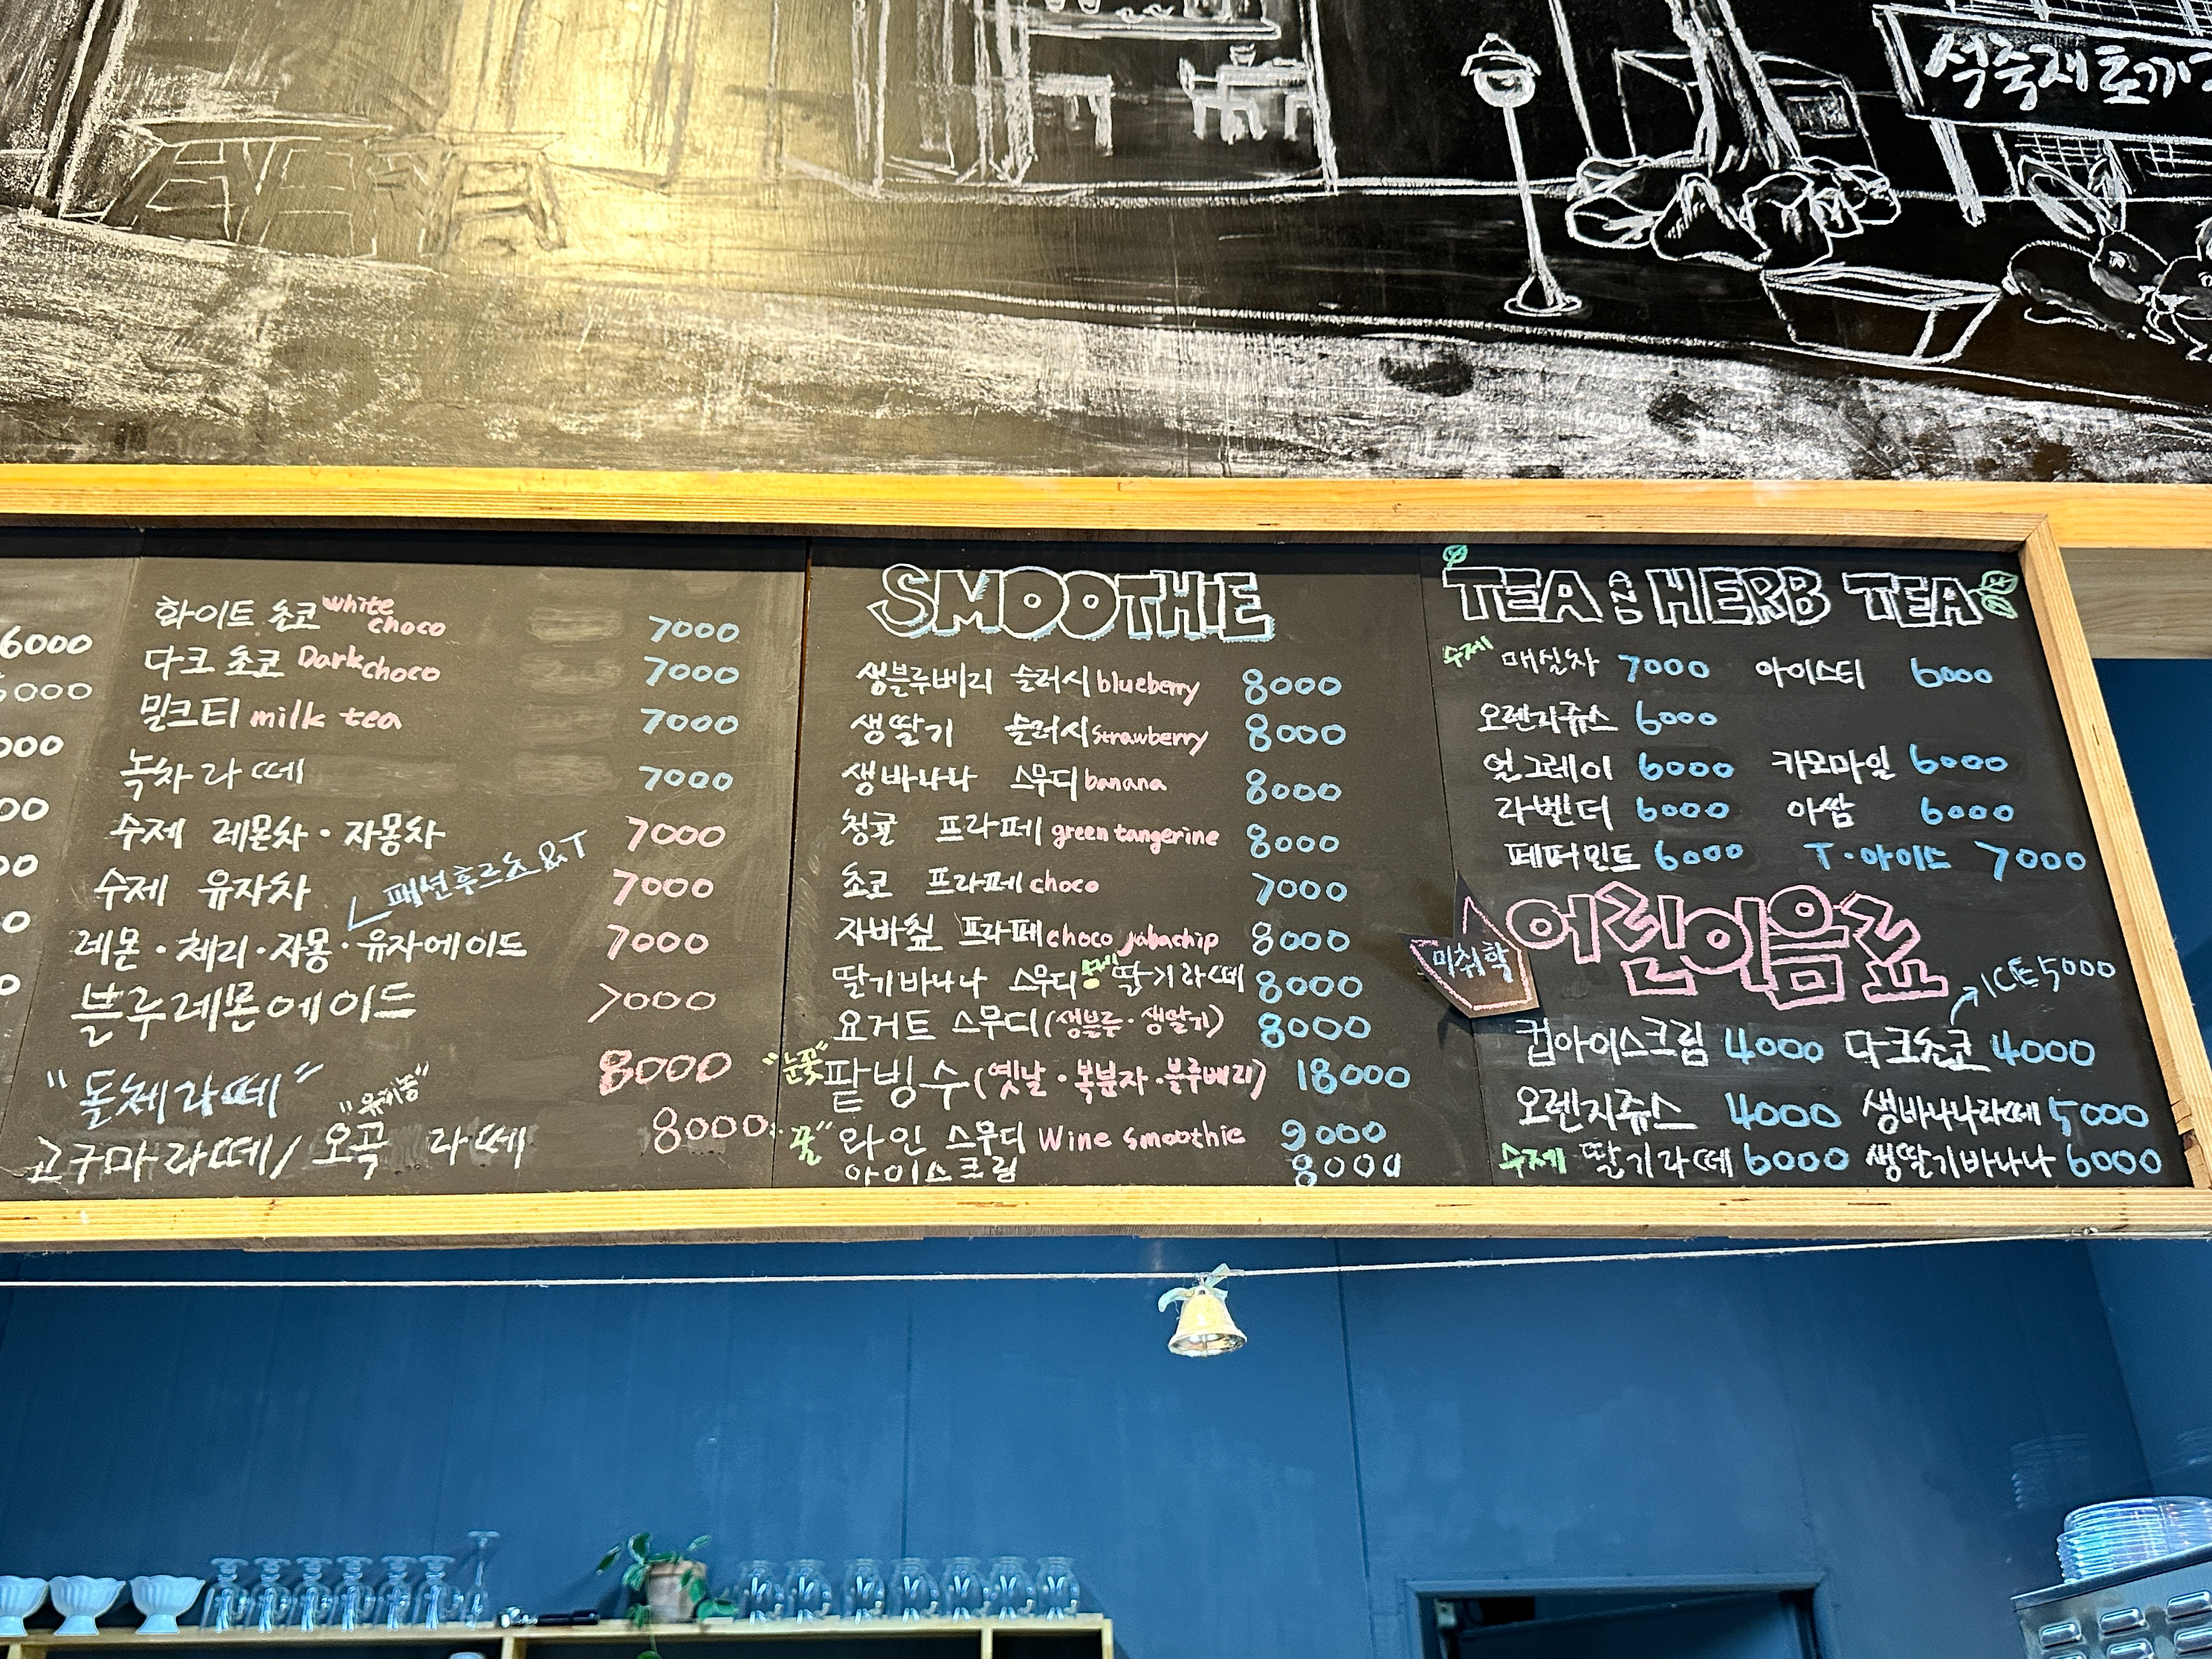 석축재토끼
6000
6000
000
00
00
0
0
화이트 초코 white choco 7000
다크 초코 Dark choco 7000
밀크티 milk tea 7000
녹차라떼 7000
수제 레몬차·자몽차 7000
패션후르츠&T
수제 유자차 7000
레몬·체리·자몽·유자에이드 7000
블루레몬에이드 7000
"돌체라떼" 8000
고구마라떼/ 오곡 라떼 8000
SMOOTHIE
생블루베리 슬러시 blueberry 8000
생딸기 슬러시 strawberry 8000
생바나나 스무디 banana 8000
청귤 프라페 green tangerine 8000
초코 프라페 choco 7000
자바칩 프라페 choco jabachip 8000
딸기바나나 스무디 수제 딸기라떼 8000
요거트 스무디 (생블루·생딸기) 8000
"눈꽃" 팥빙수 (옛날·복분자·블루베리) 18000
와인 스무디 Wine smoothie 9000
아이스크림 8000
TEA AND HERB TEA
수제 매실차 7000 아이스티 6000
오렌지쥬스 6000
얼그레이 6000 카모마일 6000
라벤더 6000 아쌈 6000
페퍼민트 6000 T·아이스 7000
미취학
어린이음료
ICE 5000
컵아이스크림 4000 다크초코 4000
오렌지쥬스 4000 생바나나라떼 5000
수제 딸기라떼 6000 생딸기바나나 6000